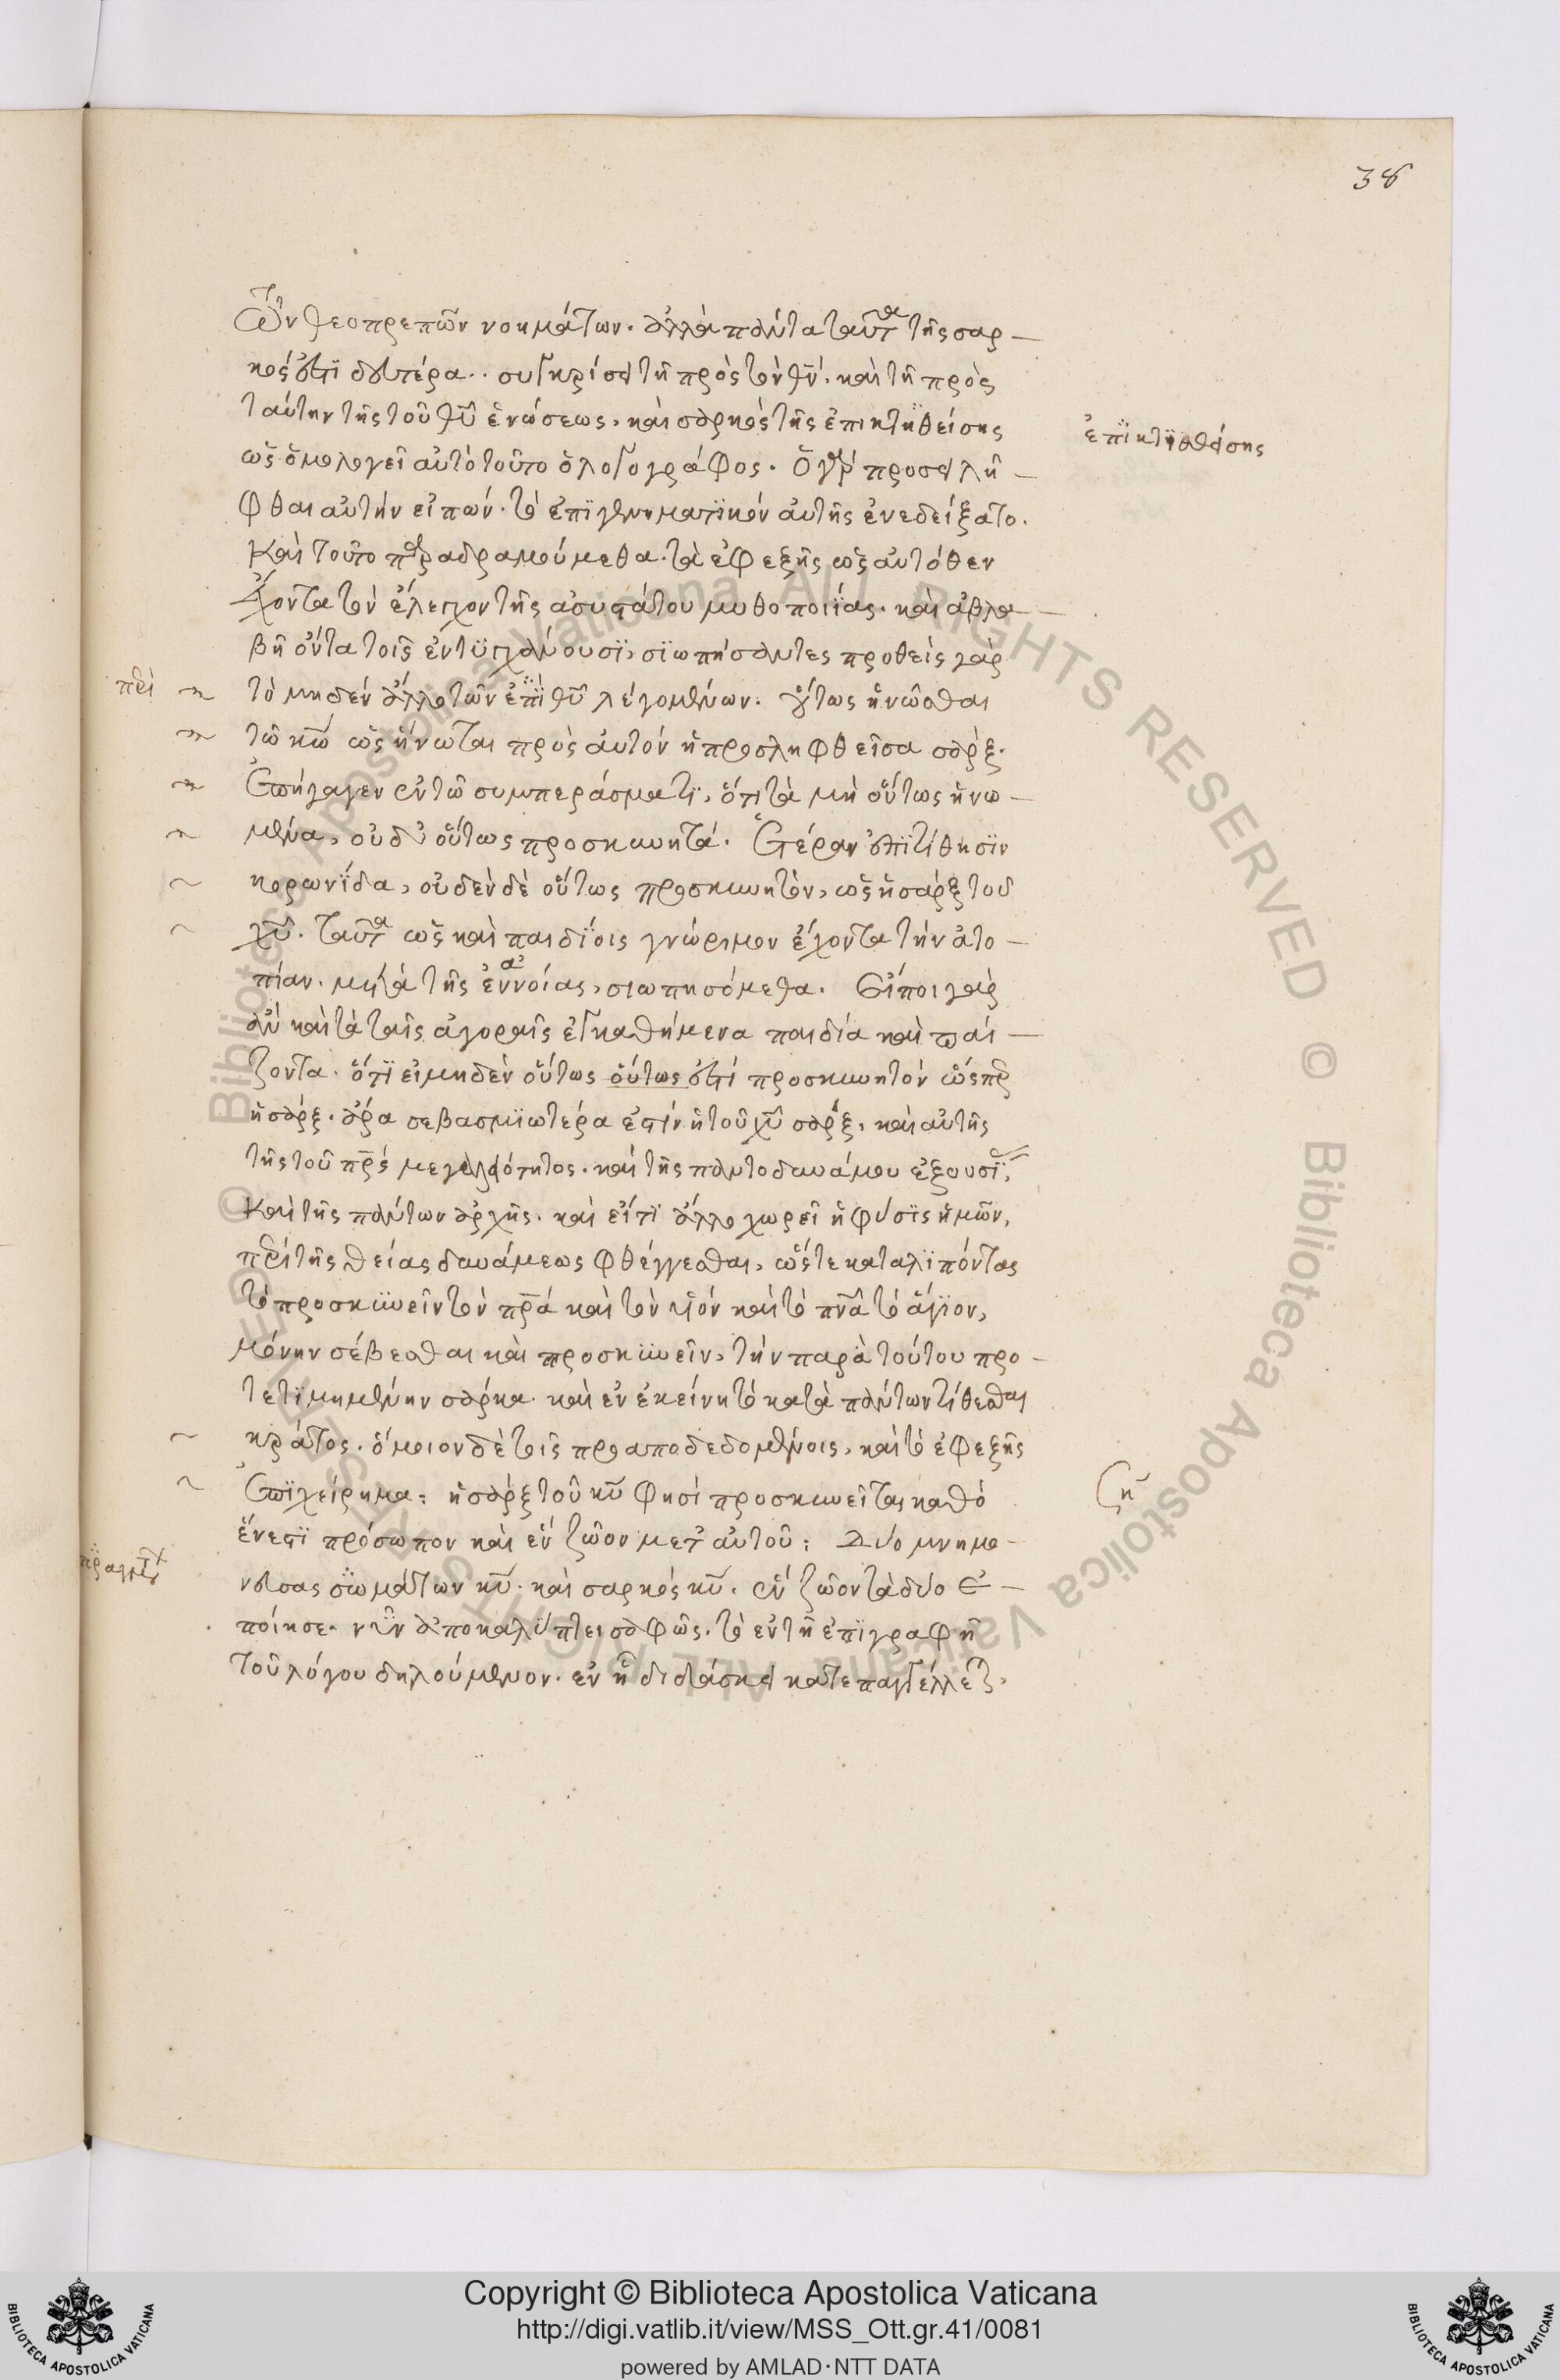 38
τῶν θεοπρεπῶν νοημάτων. ἀλλὰ πάντα ταῦτα τῆς σαρ–
κός ἐστι δευτέρα.. συγκρίσει τῇ πρὸς τὸν θν̄. καὶ τῇ πρὸς
ταύτην τῆς τοῦ θῡ ἑνώσεως, καὶ σαρκὸς τῆς ἐπικτηθείσης
ὡς ὁμολογεῖ αὐτὸ τοῦτο ὁ λογογράφος. ὁ γὰρ προσειλῆ–
φθαι αὐτὴν εἰπών. τὸ ἐπιγενηματικὸν αὐτῆς ἐνεδείξατο.
Καὶ τοῦτο παραδραμούμεθα. τὰ ἐφεξῆς ὡς αὐτόθεν
ἔχοντα τὸν ἔλεγχον τῆς ἀσυστάτου μυθοποιίας. καὶ ἀβλα–
βῆ ὄντα τοῖς ἐντυγχάνουσι, σιωπήσαντες προθεὶς γὰρ
τὸ μηδὲν ἄλλο τῶν ἐπὶ θῡ λεγομένων. οὕτως ἡνῶσθαι
τῶ κω̄ ὡς ἥνωται πρὸς αὐτὸν ἡ προσληφθεῖσα σάρξ.
Ἐπήγαγεν ἐν τῶ συμπεράσματι, ὅτι τὰ μὴ οὕτως ἡνω–
μένα, οὐδ' οὕτως προσκυνητά. Ἑτέραν ἐπιτίθησιν
κορωνίδα, οὐδὲν δὲ οὕτως προσκυνητὸν, ὡς ἡ σάρξ τοῦ
χῡ. Ταῦτα ὡς καὶ παιδίοις γνώριμον ἔχοντα τὴν ἀτο–
πίαν. μετὰ τῆς ἐννοίας, σιωπησόμεθα. Εἴποι γὰρ
ἂν καὶ τὰ ταῖς ἀγοραῖς ἐγκαθήμενα παιδία καὶ παί–
ζοντα. ὅτι εἰ μηδὲν οὕτως οὕτως ἐστὶ προσκυνητὸν ὥσπερ
ἡ σάρξ. ἄρα σεβασμιωτέρα ἐστὶν ἡ τοῦ χῡ σάρξ, καὶ αὐτῆς
τῆς τοῦ πρ̄ς μεγαλειότητος. καὶ τῆς παντοδυνάμου ἐξουσίας,
Καὶ τῆς πάντων ἀρχῆς. καὶ εἴ τι ἄλλο χωρεῖ ἡ φύσις ἡμῶν,
περὶ τῆς θείας δυνάμεως φθέγγεσθαι, ὥστε καταλιπόντας
τὸ προσκυνεῖν τὸν πρ̄α καὶ τὸν υἱὸν καὶ τὸ πν̄α τὸ ἅγιον,
μόνην σέβεσθαι καὶ προσκυνεῖν, τὴν παρὰ τούτου προ–
τετιμημένην σάρκα. καὶ ἐν ἐκείνη τὸ κατὰ πάντων τίθεσθαι
κράτος. ὅμοιον δὲ τοῖς προαποδεδομένοις, καὶ τὸ ἐφεξῆς
Ἐπιχείρημα: ἡ σάρξ τοῦ κῡ φησὶ προσκυνεῖται καθὸ
ἕν ἐστι πρόσωπον καὶ ἓν ζῶον μετ' αὐτοῦ: Δύο μνημο–
νεύσας σωμάτων κῡ. καὶ σαρκὸς κῡ. ἓν ζῶον τὰ δύο ἐ–
ποίησε. νῦν ἀποκαλύπτει σαφῶς. τὸ ἐν τῇ ἐπιγραφῇ
τοῦ λόγου δηλούμενον. ἐν ᾗ διδάσκει κατεπαγγέλλεται,
ἐπικτισθείσης
περὶ
ζη
Copyright © Biblioteca Apostolica Vaticana
http://digi.vatlib.it/view/MSS_Ott.gr.41/0081
powered by AMLAD·NTT DATA
BIBLIOTECA APOSTOLICA VATICANA
BIBLIOTECA APOSTOLICA VATICANA
© Biblioteca Apostolica Vaticana ALL RIGHTS RESERVED